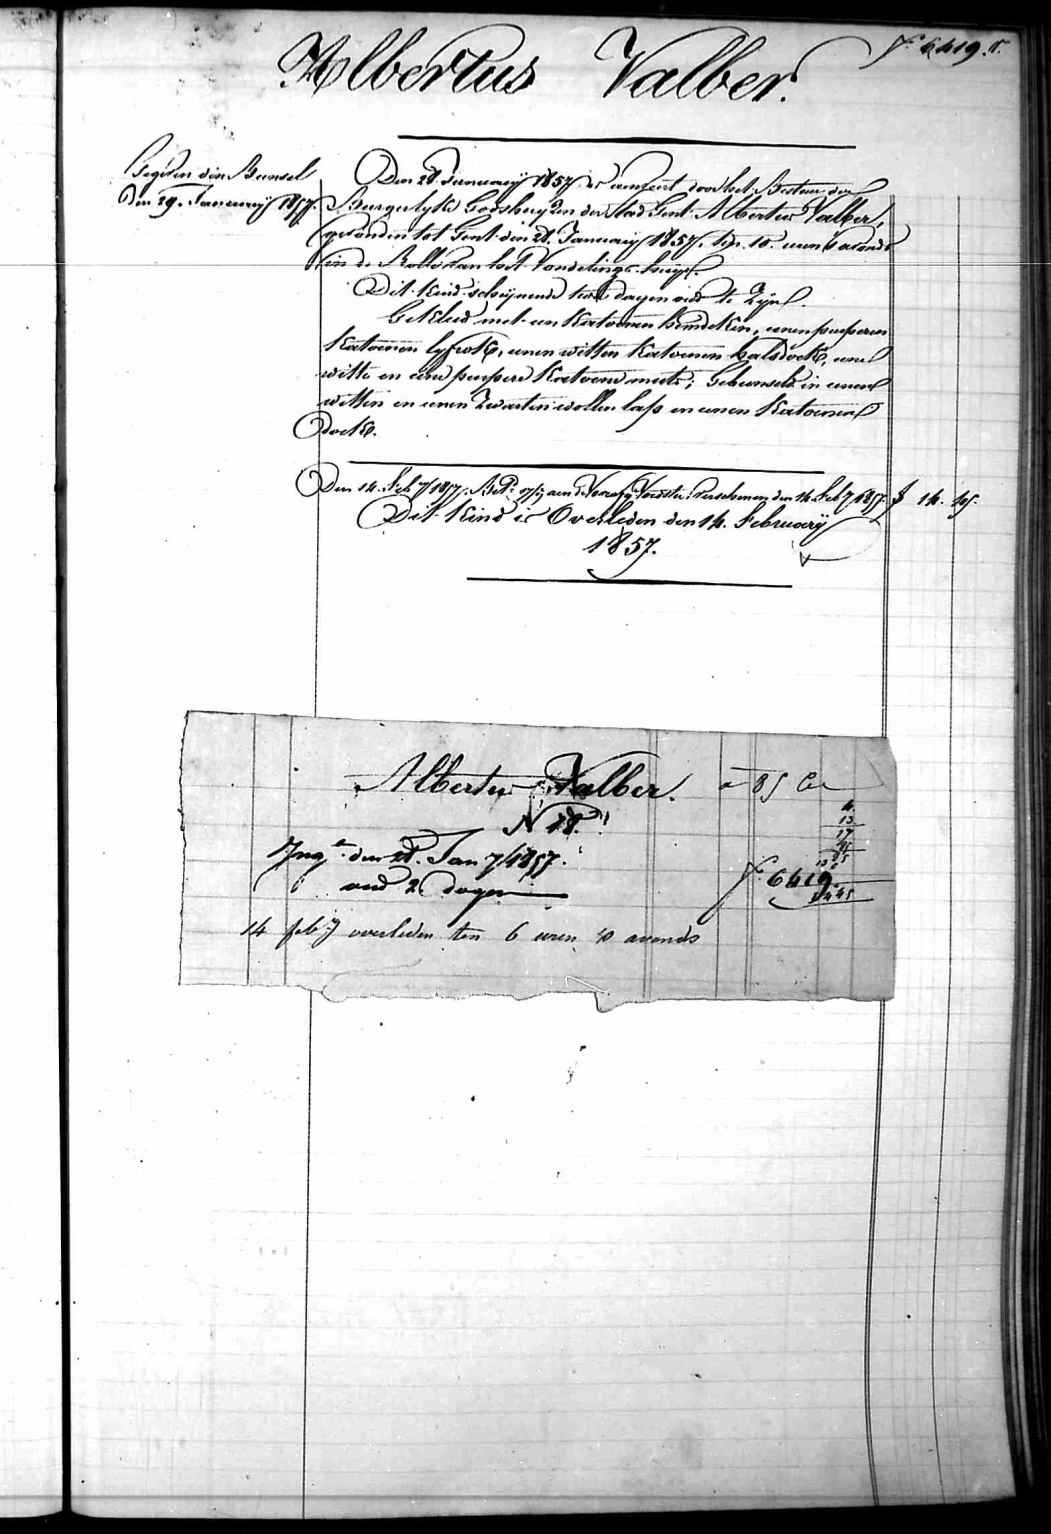 Fº 6419. r.
Albertus Valber.
Den 28. January 1857 is aenveert door het Bestuer der
den 29. January 1857.
Burgerlyke Godshuyzen der Stad Gent Albertus Valber,
gevonden tot Gent den 28. January 1857, ten 10. uren 's avonds
in de Rolle van het Vondelings-huys.
Dit kind schynende twee dagen oud te zyn.
Gekleed met een katoenen hemdeken, eenen purperen
katoenen lyfrok, eenen witten katoenen halsdoek, eene
witte en eene purpere katoene muts; gebunseld in eenen
witten en eenen zwarten wollen lap en eenen katoenen
doek.
Den 14. feb.y 1857. Bet. aen de Voorzg. Voedster. verschenen den 14. feb.y 1857. f 14. 45.
Dit kind is Overleden den 14. February
1857.
Albertus Valber. a 85 Ce
N 28.
4.
13
17
Ing.n den 28. Jan.y 1857.
oud 2 dagen
Fº 6419
14 45
14 feb.y overleden ten 6 uren 's avonds